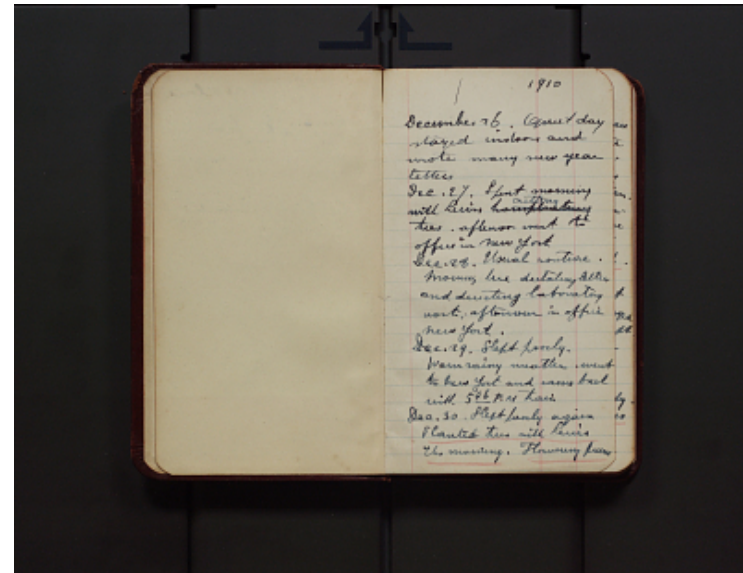 1910
December 26. Quiet day
stayed indoors and
wrote many new year
letters
Dec. 27. Spent morning
with Lewis
trees. afternoon went to
office in New York
Dec. 28. Usual routine.
Morning here dictating letters
and directing laboratory
work, afternoon in office
New York.
Dec. 29. Slept poorly.
Warm rainy weather. went
to New York and came back
with 5 train
Dec. 30. Slept poorly again
Planted trees with Lewis
this morning. Flowering